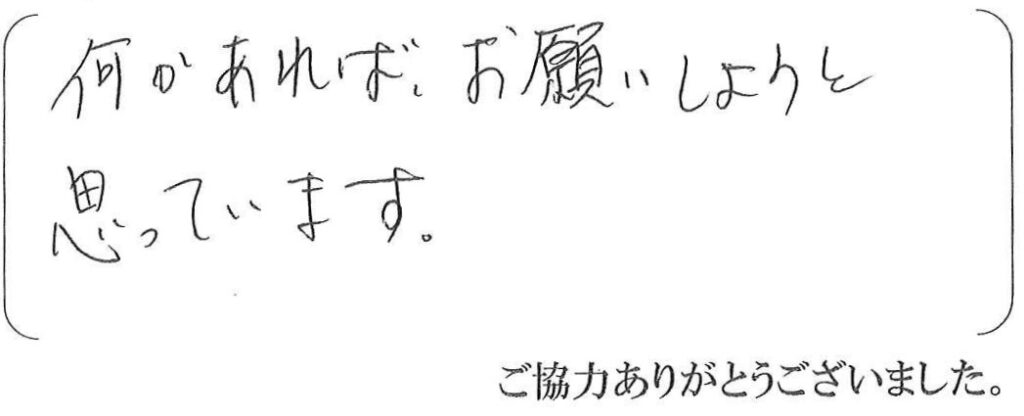 何かあれば、お願いしようと
思っています。
ご協力ありがとうございました。